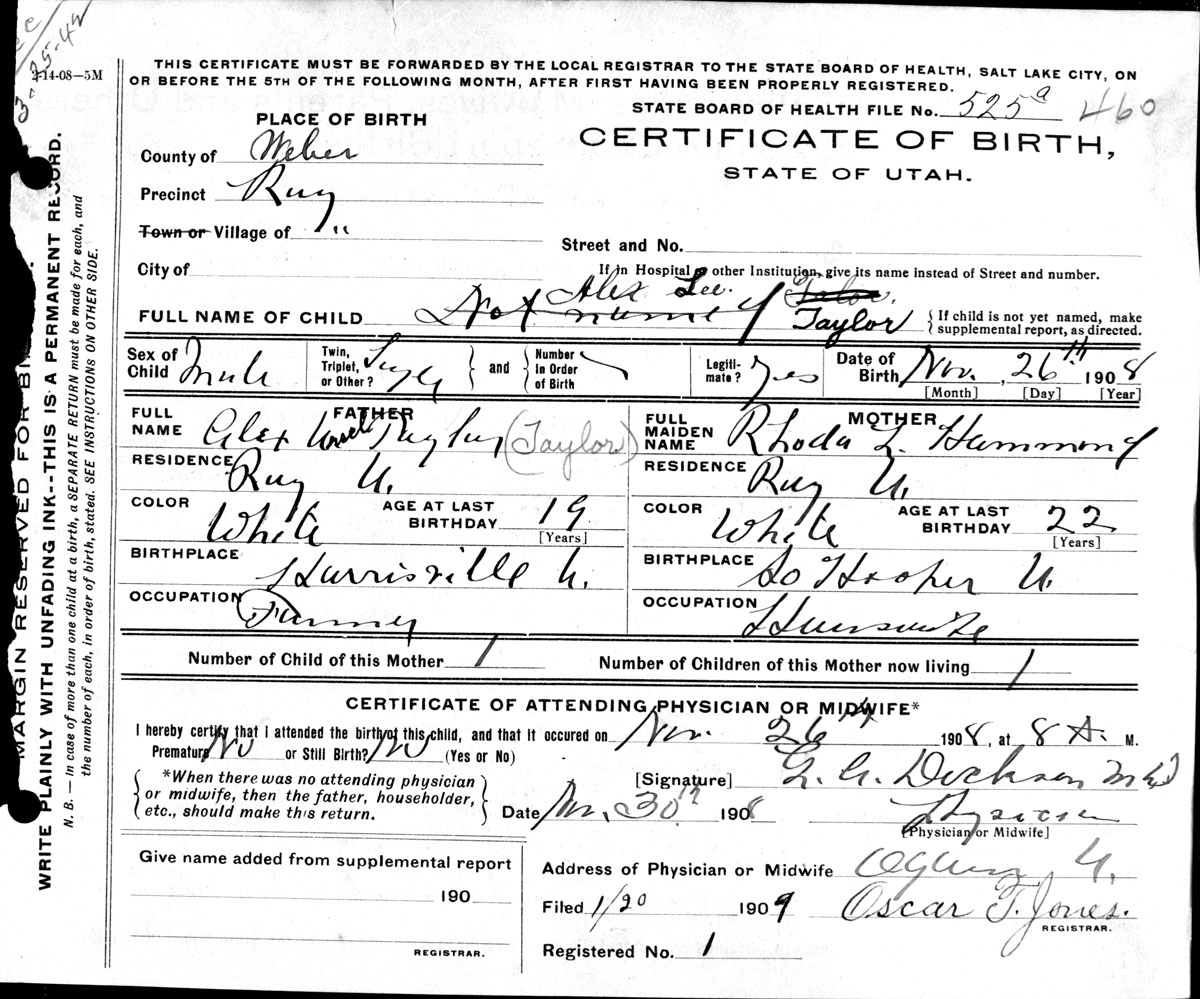 3-25-42
2-14-08—5M
THIS CERTIFICATE MUST BE FORWARDED BY THE LOCAL REGISTRAR TO THE STATE BOARD OF HEALTH, SALT LAKE CITY, ON
OR BEFORE THE 5TH OF THE FOLLOWING MONTH, AFTER FIRST HAVING BEEN PROPERLY REGISTERED.
STATE BOARD OF HEALTH FILE No. 525a 460
PLACE OF BIRTH
CERTIFICATE OF BIRTH,
STATE OF UTAH.
County of Weber
Precinct Roy
Town or Village of "
Street and No.
City of
If in Hospital or other Institution, give its name instead of Street and number.
Alex Lee
FULL NAME OF CHILD Not named Taylor
{If child is not yet named, make
supplemental report, as directed.
Sex of Child Male
Twin, Triplet, or Other? Single
and
Number in Order of Birth
Legitimate? Yes
Date of Birth Nov. 26th 1908
[Month] [Day] [Year]
FATHER
FULL NAME Alex Taylor (Taylor)
MOTHER
FULL MAIDEN NAME Rhoda L. Hammond
RESIDENCE Roy U.
RESIDENCE Roy U.
COLOR White
AGE AT LAST BIRTHDAY 19
[Years]
COLOR White
AGE AT LAST BIRTHDAY 22
[Years]
BIRTHPLACE Harrisville U.
BIRTHPLACE So Hooper U.
OCCUPATION Farmer
OCCUPATION Housewife
Number of Child of this Mother 1
Number of Children of this Mother now living 1
CERTIFICATE OF ATTENDING PHYSICIAN OR MIDWIFE*
I hereby certify that I attended the birth of this child, and that it occured on Nov. 26th 1908, at 8 A. M.
Premature No or Still Birth? No (Yes or No)
{*When there was no attending physician
or midwife, then the father, householder,
etc., should make this return.}
[Signature] Dickson M.D.
Date Nov. 30th 1908
Physician
[Physician or Midwife]
Give name added from supplemental report
190
REGISTRAR.
Address of Physician or Midwife Ogden U.
Filed 1/20 1909 Oscar T. Jones.
REGISTRAR.
Registered No. 1
MARGIN RESERVED FOR
WRITE PLAINLY WITH UNFADING INK--THIS IS A PERMANENT RECORD.
N. B. — In case of more than one child at a birth, a SEPARATE RETURN must be made for each, and
the number of each, in order of birth, stated. SEE INSTRUCTIONS ON OTHER SIDE.